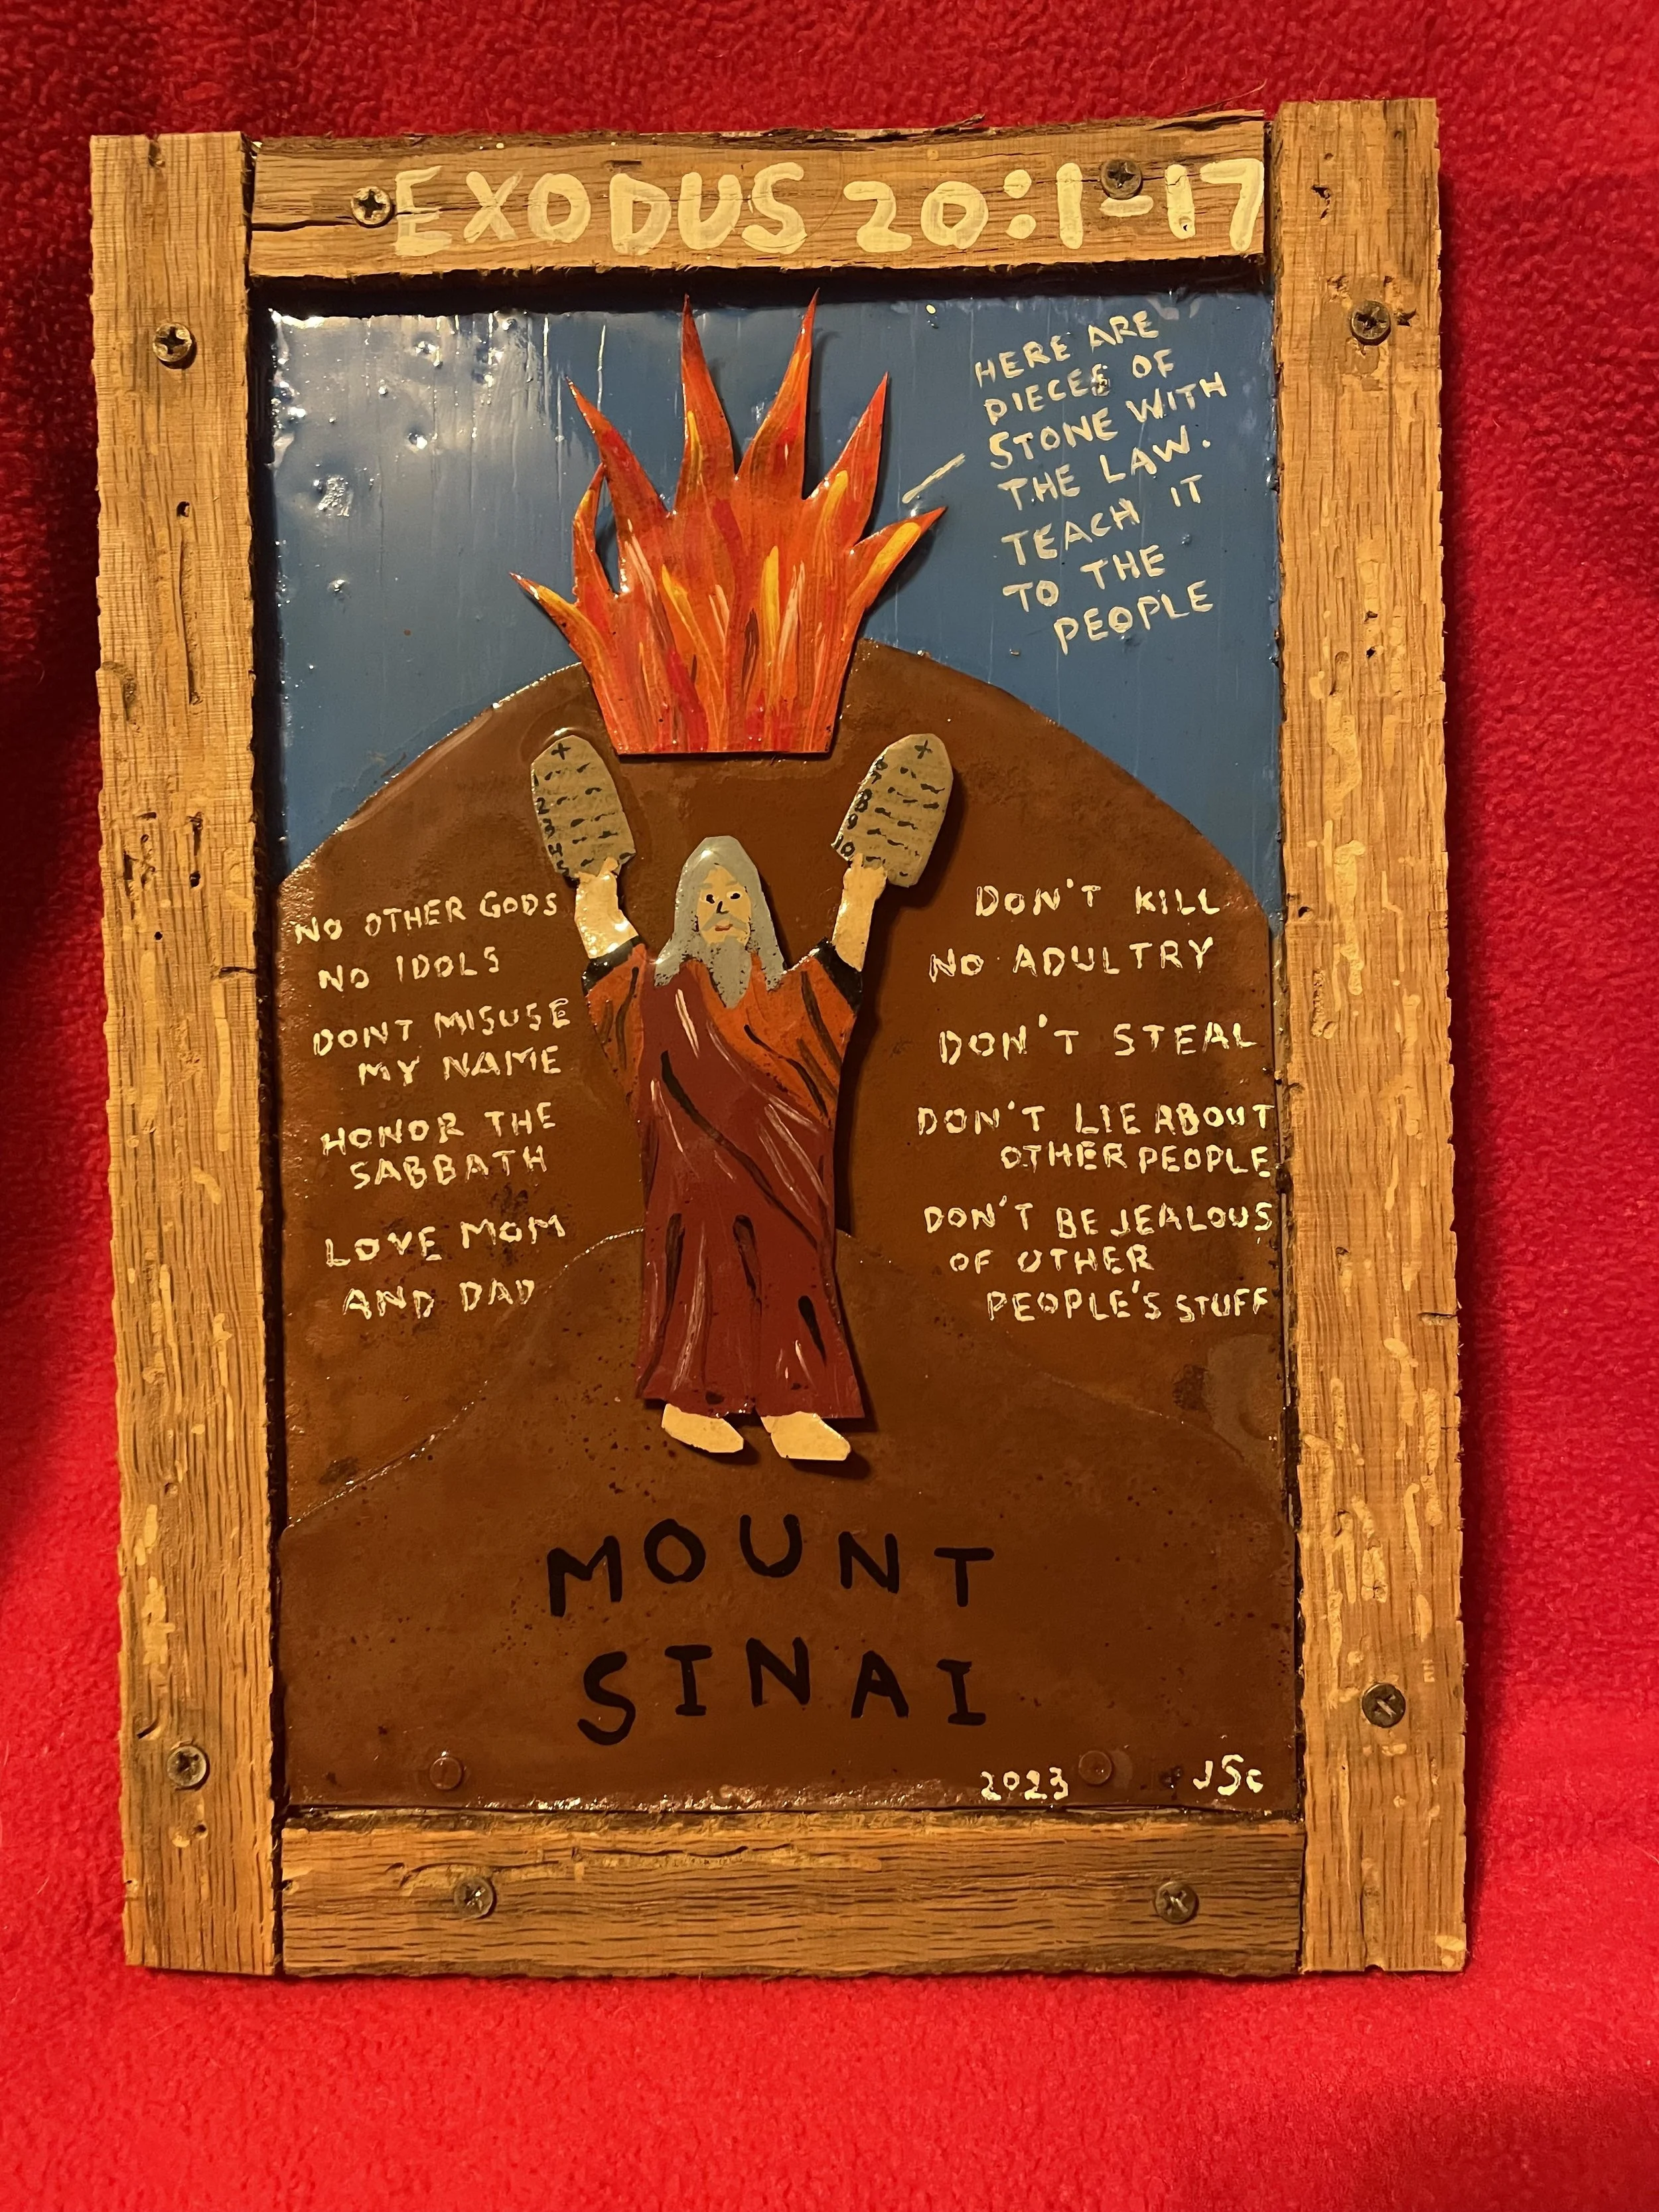 EXODUS 20:1-17
HERE ARE
PIECES OF
STONE WITH
THE LAW.
TEACH IT
TO THE
PEOPLE
1
2
3
4
5
6
7
8
9
10
NO OTHER GODS
NO IDOLS
DONT MISUSE
MY NAME
HONOR THE
SABBATH
LOVE MOM
AND DAD
DON'T KILL
NO ADULTRY
DON'T STEAL
DON'T LIE ABOUT
OTHER PEOPLE
DON'T BE JEALOUS
OF OTHER
PEOPLE'S STUFF
MOUNT
SINAI
2023 JSC